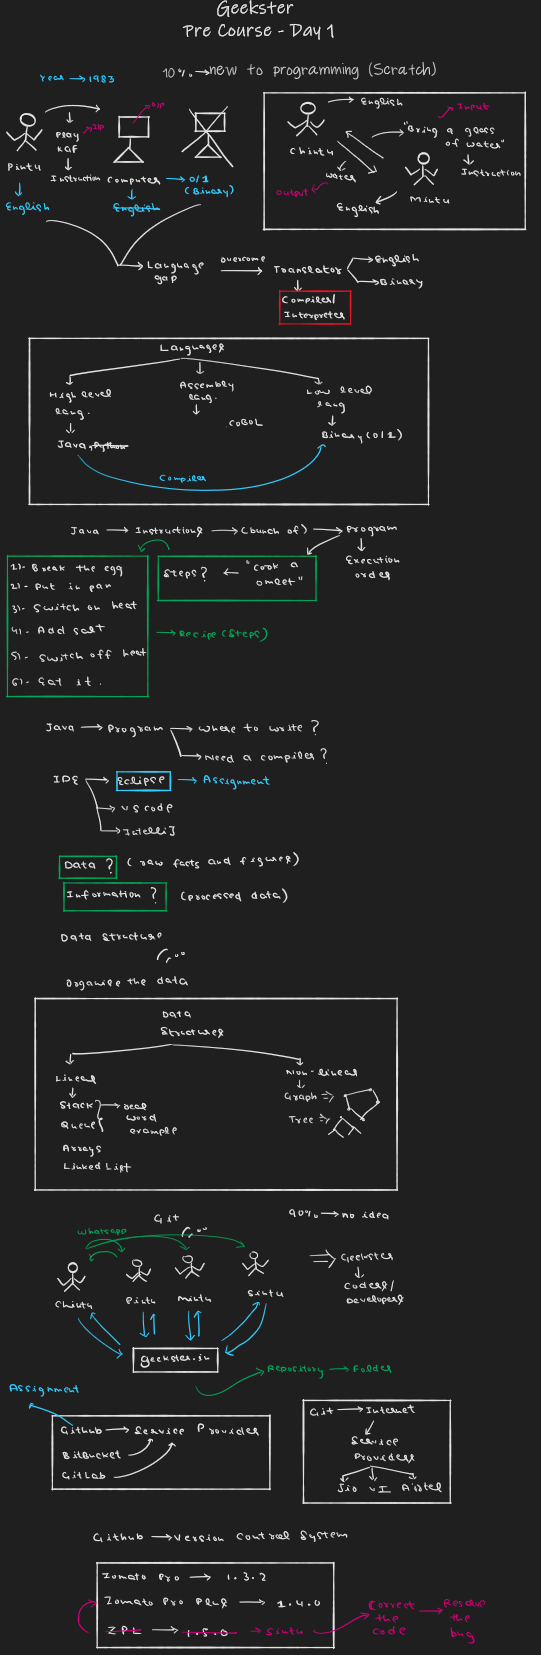 Geekster
Pre Course - Day 1
10% → new to programming (Scratch)
Year → 1983
English
Input
"Bring a glass
of water"
Chintu
Water
Instruction
Output
English
Mintu
I/P
O/P
Play
KGF
Pintu
Instruction
Computer → 0/1
(Binary)
English
English
Language
gap
overcome
Translator
English
Binary
Compiler/
Interpreter
Languages
High level
lang.
Assembly
lang.
Low level
lang
COBOL
Java, Python
Binary (0/1)
Compiler
Java → Instructions → (bunch of) → Program
Execution
order
Steps? ← "Cook a
omlet"
1)- Break the egg
2)- Put in pan
3)- Switch on heat
4)- Add salt
5)- Switch off heat
6)- Eat it.
→ Recipe (Steps)
Java → Program → Where to write?
Need a compiler?
IDE → Eclipse → Assignment
VS code
IntelliJ
Data? (raw facts and figures)
Information? (processed data)
Data Structure
Organise the data
Data
Structures
Linear
Non-linear
Stack
Queue
Real
word
example
Arrays
Linked List
Graph ⇒
Tree ⇒
Git
90% → no idea
Whatsapp
Chintu
Pintu
Mintu
Sintu
⇒ Geekster
Coders/
Developers
geekster.in
Repository → Folder
Assignment
Github → Service Provider
BitBucket
GitLab
Git → Internet
Service
Providers
Jio VI Airtel
Github → Version Control System
Zomato Pro → 1.3.2
Zomato Pro Plus → 1.4.0
ZPL → 1.5.0 → Sintu
Correct
the
code
→ Resolve
the
bug